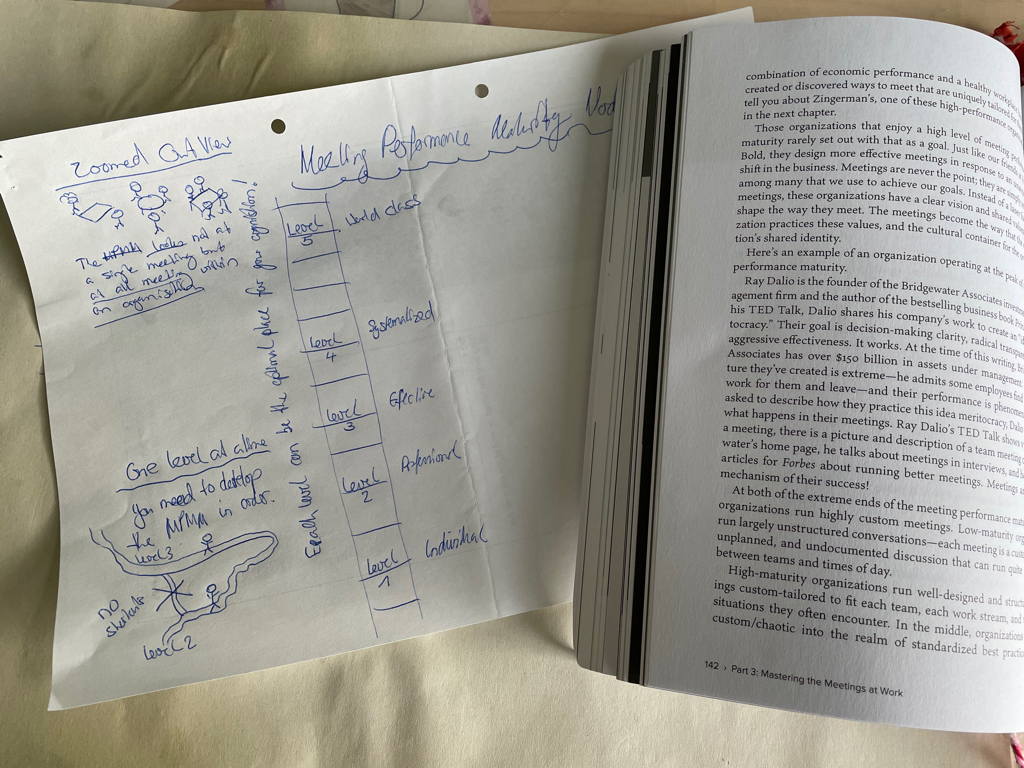 Meeting Performance Maturity Mod
Zoomed Out View
The looks not at
a single meeting but
at all meeting within
an organisation
Each level can be the optimal place for your organisation!
Level
5
World class
Level
4
Systematized
Level
3
Effective
Level
2
Professional
Level
1
Individual
One level at a time
you need to develop
the MPMM in order.
Level 3
no
shortcuts
Level 2
combination of economic performance and a healthy workplace
created or discovered ways to meet that are uniquely tailored
tell you about Zingerman's, one of these high-performance
in the next chapter.
Those organizations that enjoy a high level of meeting
maturity rarely set out with that as a goal. Just like our friends
Bold, they design more effective meetings in response to an
shift in the business. Meetings are never the point; they are
among many that we use to achieve our goals. Instead of
meetings, these organizations have a clear vision and shared
shape the way they meet. The meetings become the way
zation practices these values, and the cultural container for the
tion's shared identity.
Here's an example of an organization operating at the peak
performance maturity.
Ray Dalio is the founder of the Bridgewater Associates
agement firm and the author of the bestselling business book
his TED Talk, Dalio shares his company's work to create an
tocracy." Their goal is decision-making clarity, radical
aggressive effectiveness. It works. At the time of this writing,
Associates has over $150 billion in assets under management.
ture they've created is extreme—he admits some employees
work for them and leave—and their performance is
asked to describe how they practice this idea meritocracy,
what happens in their meetings. Ray Dalio's TED Talk
a meeting, there is a picture and description of a team meeting
water's home page, he talks about meetings in interviews, and
articles for Forbes about running better meetings. Meetings
mechanism of their success!
At both of the extreme ends of the meeting performance
organizations run highly custom meetings. Low-maturity
run largely unstructured conversations—each meeting is a
unplanned, and undocumented discussion that can run quite
between teams and times of day.
High-maturity organizations run well-designed and
ings custom-tailored to fit each team, each work stream, and
situations they often encounter. In the middle, organizations
custom/chaotic into the realm of standardized best
142 › Part 3: Mastering the Meetings at Work